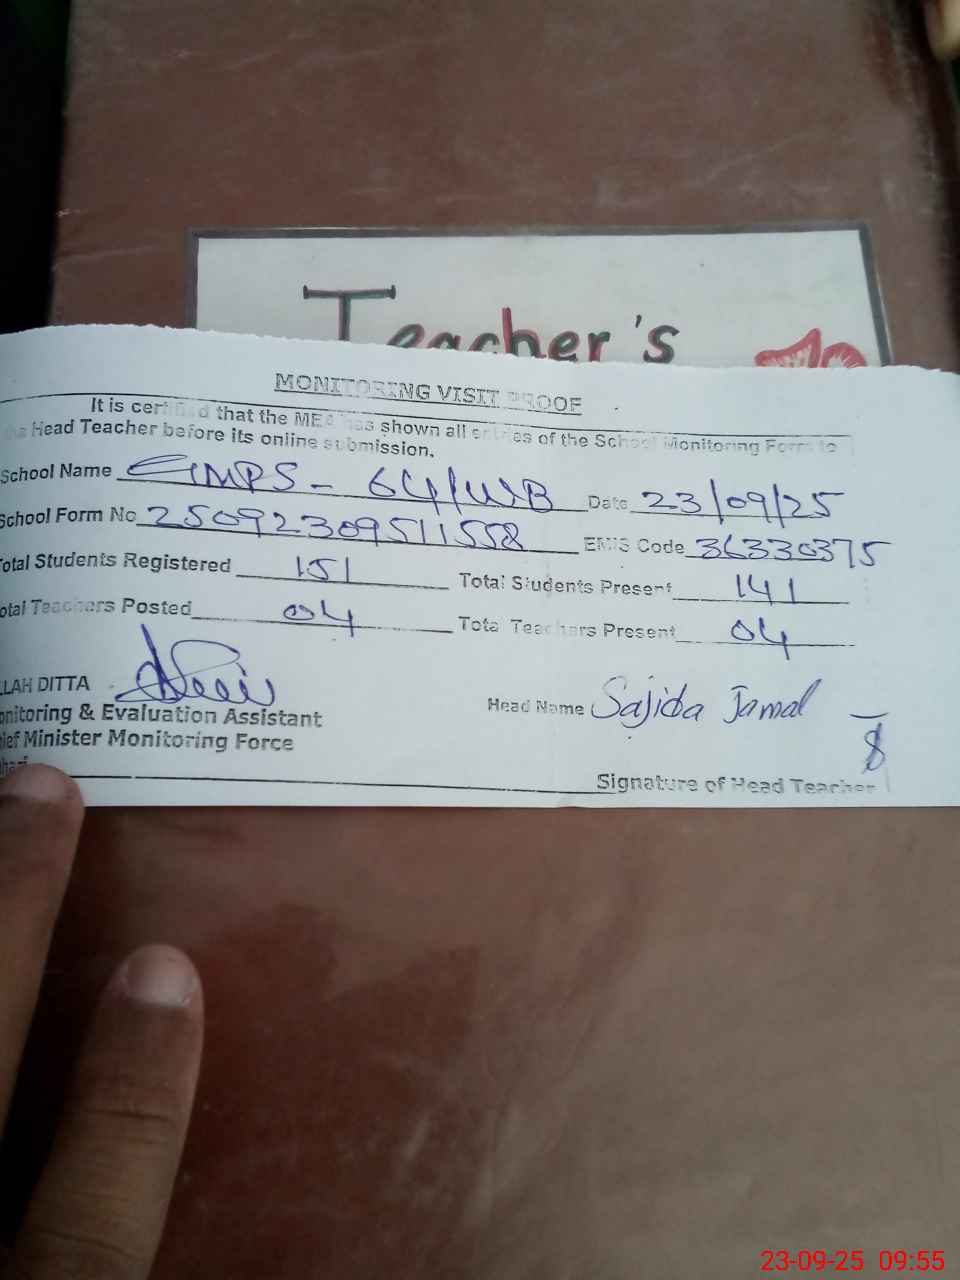 Teacher's
MONITORING VISIT PROOF
It is certified that the MEA has shown all entries of the School Monitoring Form to
the Head Teacher before its online submission.
School Name GMPS - 64/WB Date 23/09/25
School Form No 25092309511558 EMIS Code 36330375
Total Students Registered 151 Total Students Present 141
Total Teachers Posted 04 Total Teachers Present 04
LLAH DITTA
onitoring & Evaluation Assistant
Head Name Sajida Jamal
ief Minister Monitoring Force
hari
Signature of Head Teacher
23-09-25 09:55